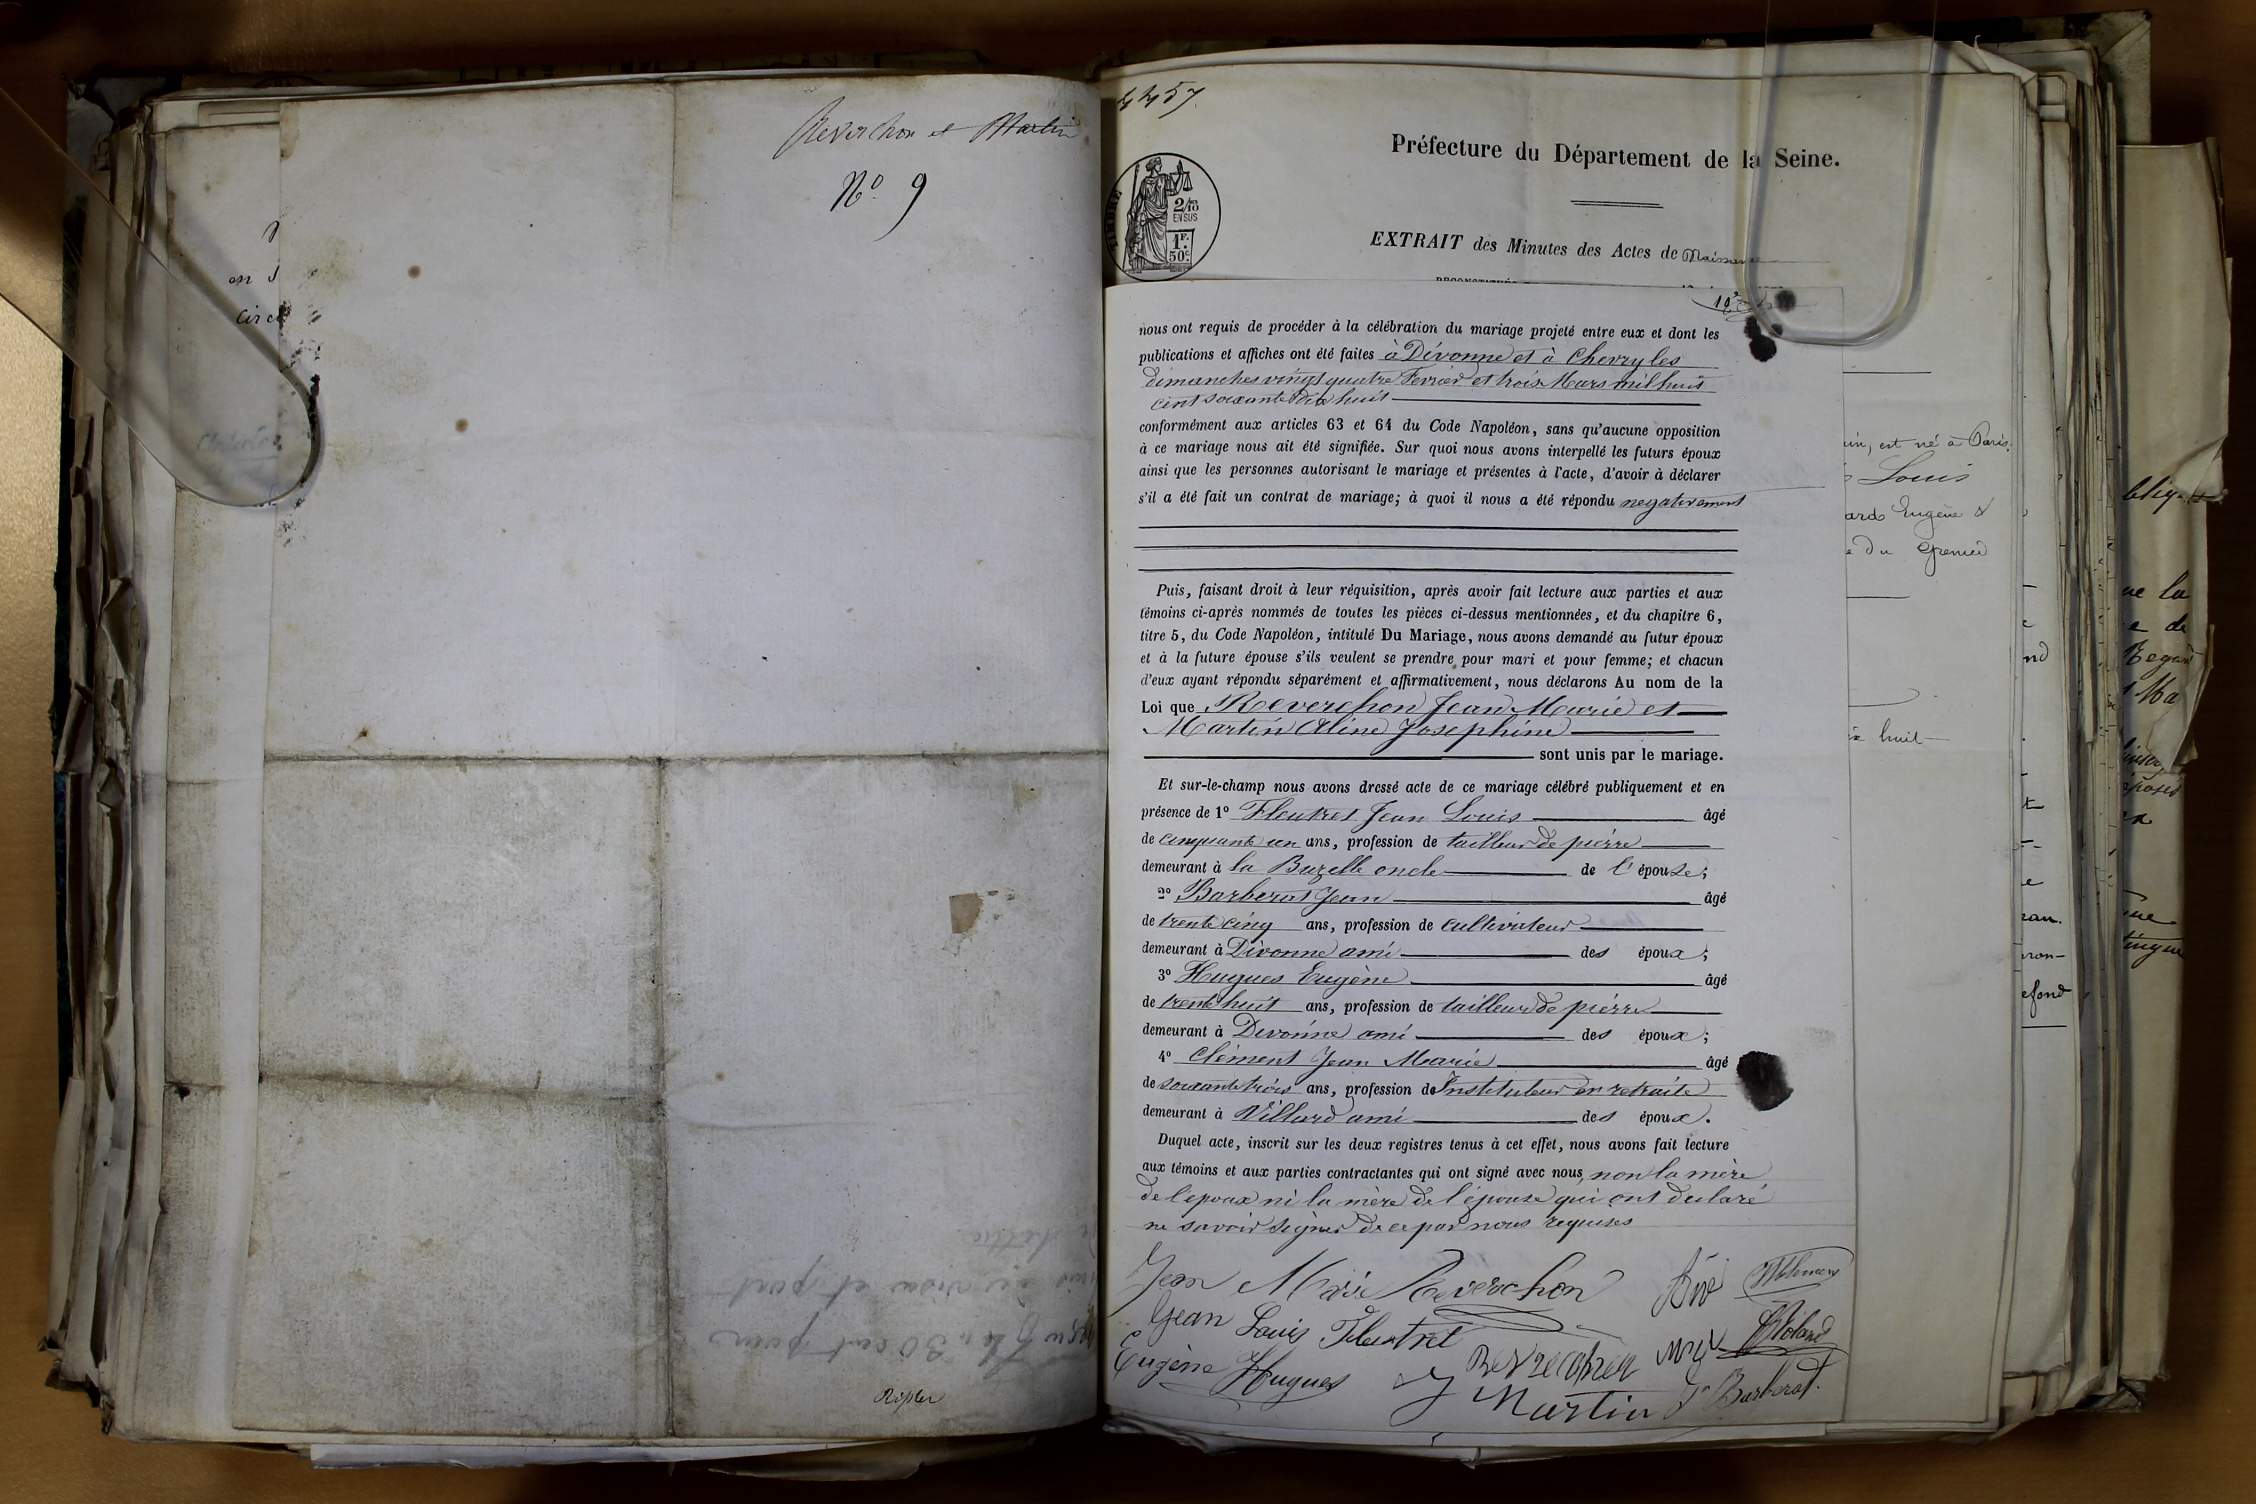 Reverchon et Martin
No. 9
en
Ripler
4457
Préfecture du Département de la Seine.
TIMBRE
2/10
EN SUS
1F.
50c
EXTRAIT des Minutes des Actes de Naissance
nous ont requis de procéder à la célébration du mariage projeté entre eux et dont les
publications et affiches ont été faites à Divonne et à Chevry les
dimanches vingt quatre Fevrier et trois Mars mil huit
cent soixante dix huit
conformément aux articles 63 et 64 du Code Napoléon, sans qu'aucune opposition
à ce mariage nous ait été signifiée. Sur quoi nous avons interpellé les futurs époux
ainsi que les personnes autorisant le mariage et présentes à l'acte, d'avoir à déclarer
s'il a été fait un contrat de mariage; à quoi il nous a été répondu negativement
Puis, faisant droit à leur réquisition, après avoir fait lecture aux parties et aux
témoins ci-après nommés de toutes les pièces ci-dessus mentionnées, et du chapitre 6,
titre 5, du Code Napoléon, intitulé Du Mariage, nous avons demandé au futur époux
et à la future épouse s'ils veulent se prendre pour mari et pour femme; et chacun
d'eux ayant répondu séparément et affirmativement, nous déclarons Au nom de la
Loi que Reverchon Jean Marie et
Martin Aline Josephine
sont unis par le mariage.
Et sur-le-champ nous avons dressé acte de ce mariage célébré publiquement et en
présence de 1o Fleutret Jean Louis âgé
de cinquante un ans, profession de tailleur de pierre
demeurant à la Buzelle oncle de l'épouse;
2o Barberat Jean âgé
de trente cinq ans, profession de cultivateur
demeurant à Divonne ami des époux;
3o Hugues Eugène âgé
de trente huit ans, profession de tailleur de pierre
demeurant à Divonne ami des époux;
4o Clément Jean Marie âgé
de soixante trois ans, profession de Instituteur en retraite
demeurant à Villard ami des époux.
Duquel acte, inscrit sur les deux registres tenus à cet effet, nous avons fait lecture
aux témoins et aux parties contractantes qui ont signé avec nous, non la mère
de l'epoux ni la mère de l'épouse qui ont declaré
ne savoir signer de ce par nous requises
Jean Marie Reverchon
Jean Louis Fleutret
Reverchon
Roland
Eugène Hugues
Martin
Jn Barberat
in, est né à Paris,
Louis
ards Eugène &
du Grenier
huit